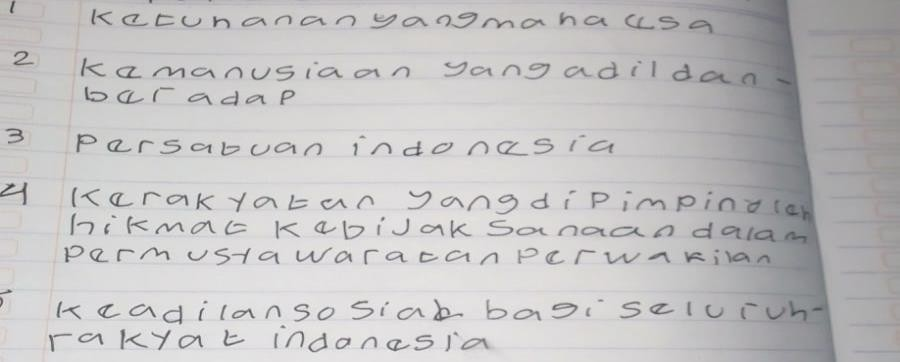 1 Ketuhanan yang maha esa
2 Kemanusiaan yang adil dan -
beradap
3 Persabuan indonesia
4 Kerakyatan yang dipimpin oleh
hikmat Kebijaksanaan dalam
permustawaratan perwakilan
5 Keadilan sosiab bagi seluruh-
rakyat indonesia